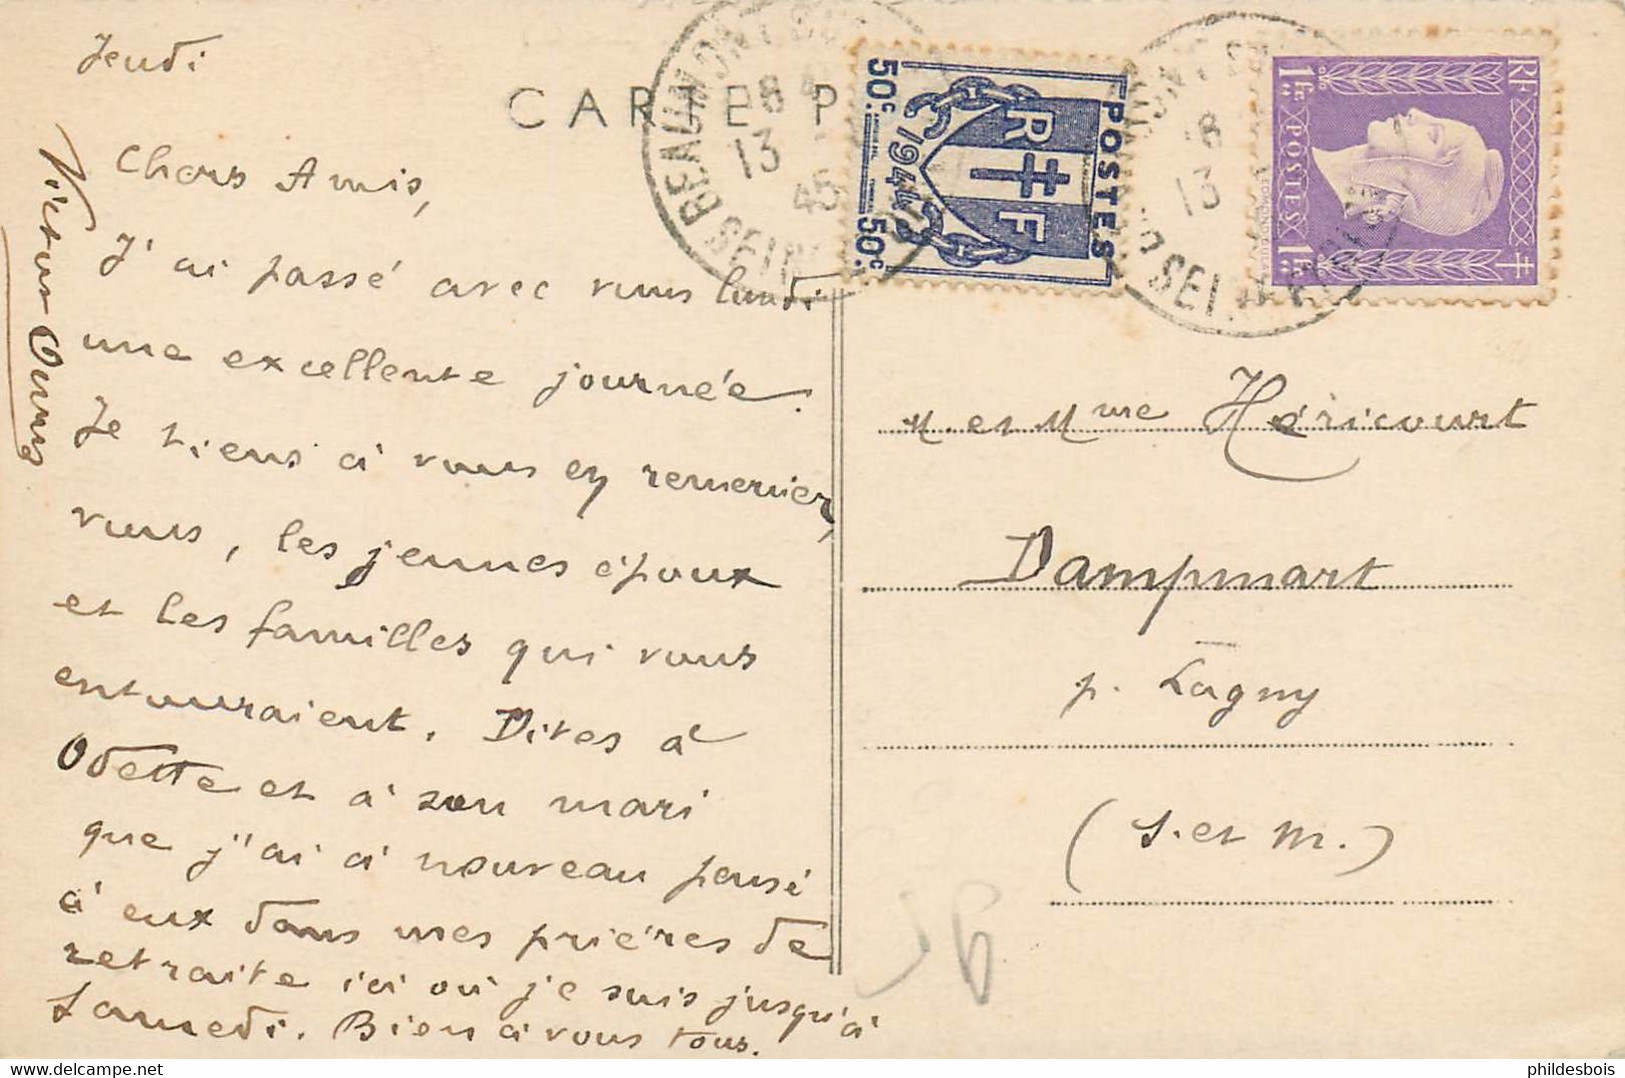 Jeudi
CARTE P
BEAUMONT SUR
18
13
45
SEINE
50c POSTES RF 1944 50c
RF 1Fr 50 POSTES 1Fr 50
Chers Amis,
J'ai passé avec vous lundi
une excellente journée.
Je tiens à vous en remercier,
vous, les jeunes époux
et les familles qui vous
entouraient. Dites à
Odette et à son mari
que j'ai à nouveau pensé
à eux dans mes prières de
retraite ici où je suis jusqu'à
Samedi. Bien à vous tous.
Victor
M. et Mme Héricourt
Dampmart
p. Lagny
(S. et M.)
phildesbois